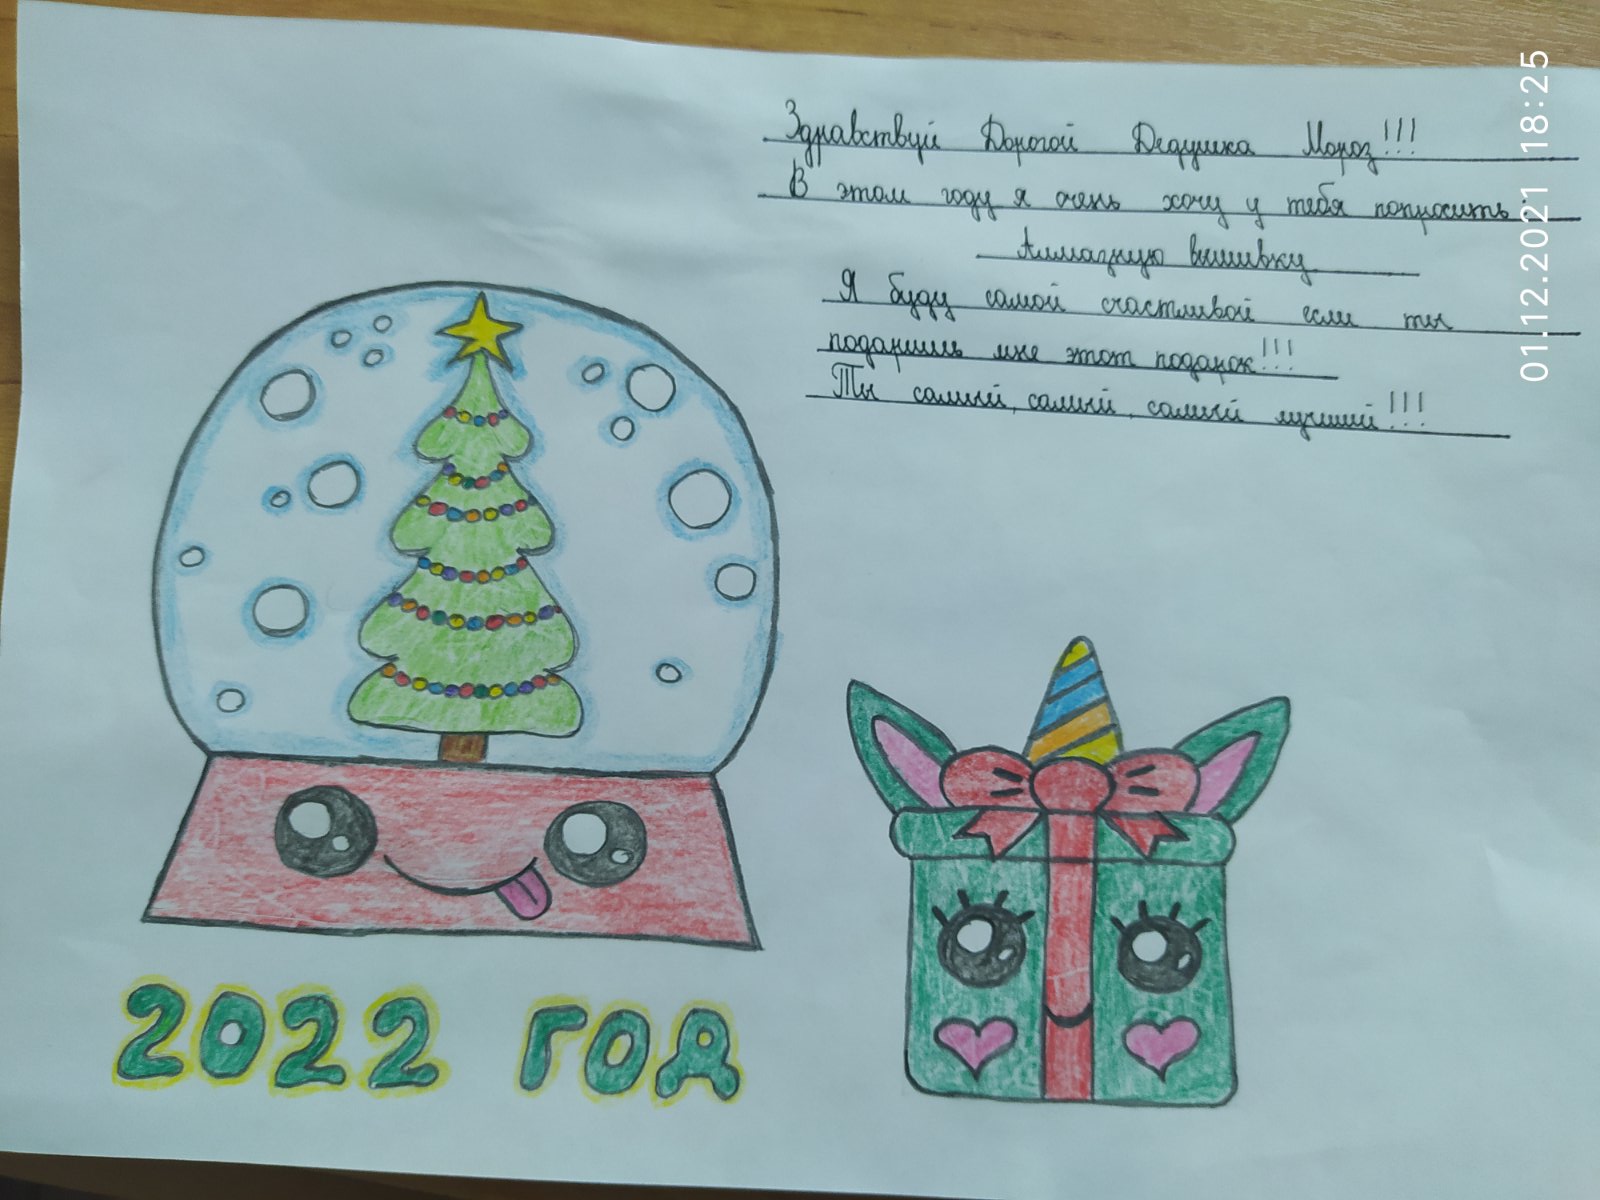 Здравствуй Дорогой Дедушка Мороз!!!
В этом году я очень хочу у тебя попросить:
Алмазную вышивку
Я буду самой счастливой если ты
подаришь мне этот подарок!!!
Ты самый, самый, самый лучший!!!
2022 год
01.12.2021 18:25